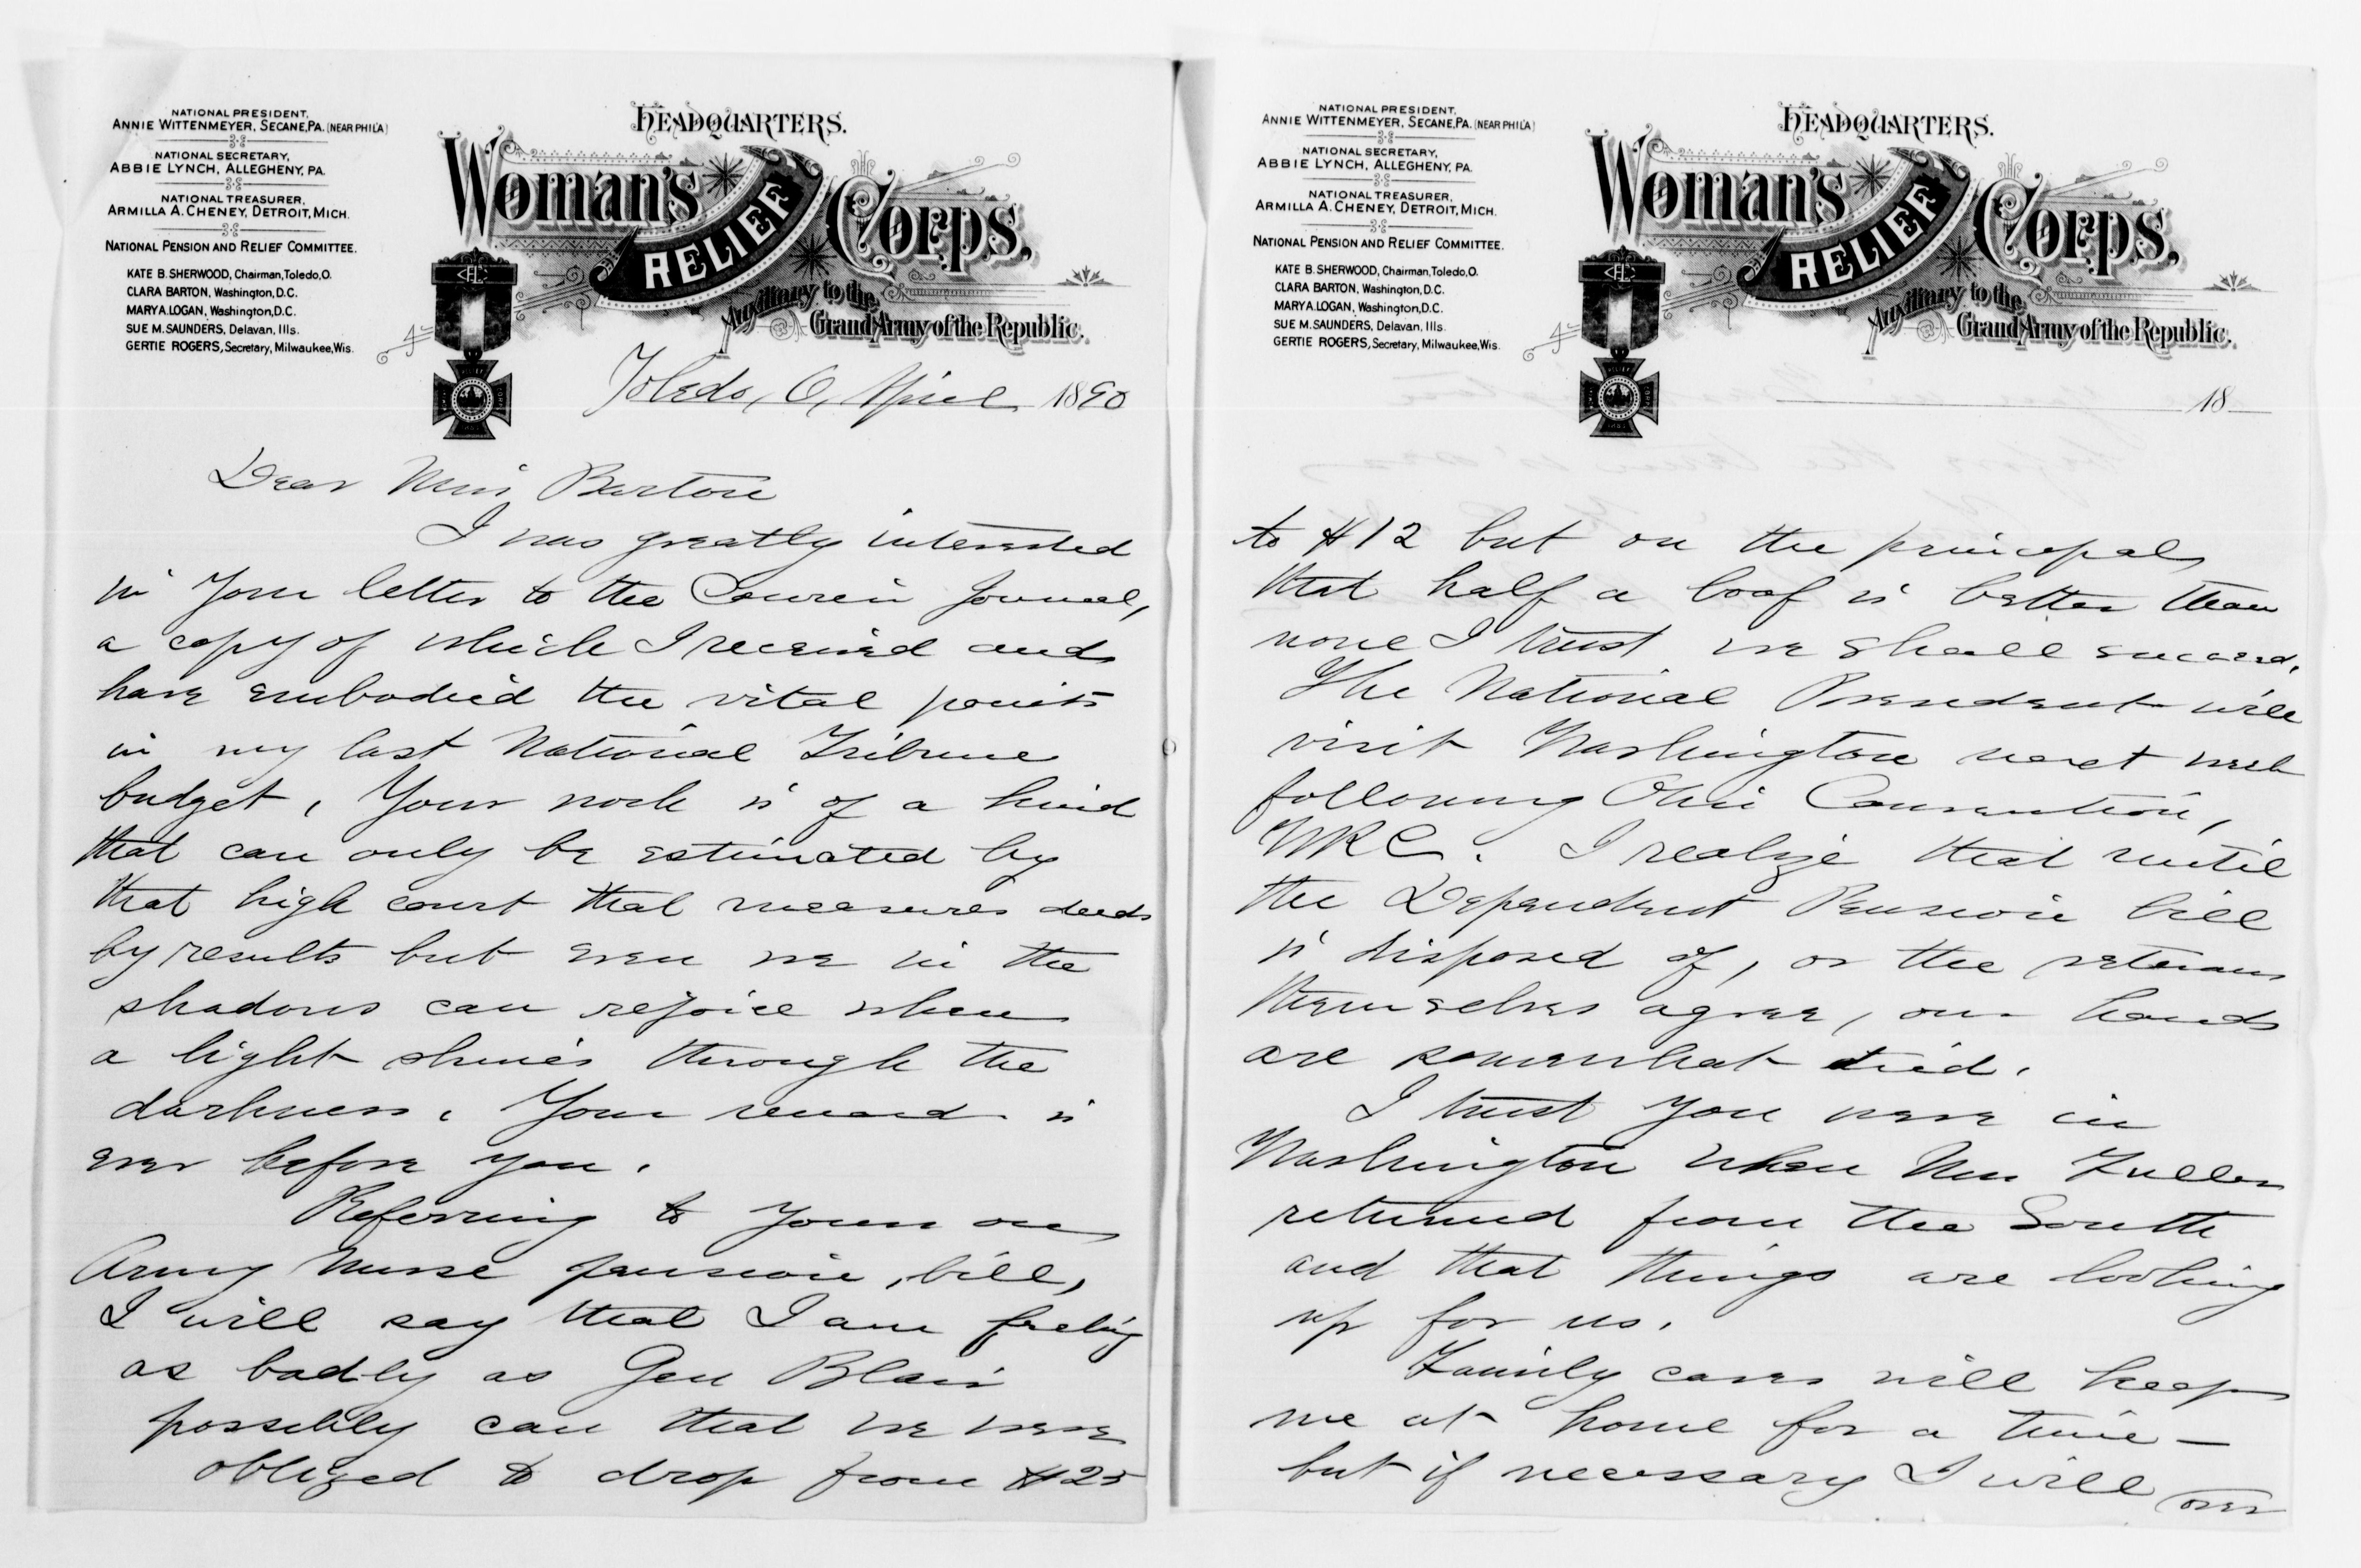 NATIONAL PRESIDENT,
ANNIE WITTENMEYER, SECANE, PA. (NEAR PHIL'A)
NATIONAL SECRETARY,
ABBIE LYNCH, ALLEGHENY, PA.
NATIONAL TREASURER,
ARMILLA A. CHENEY, DETROIT, MICH.
NATIONAL PENSION AND RELIEF COMMITTEE.
KATE B. SHERWOOD, Chairman, Toledo, O.
CLARA BARTON, Washington, D.C.
MARY A. LOGAN, Washington, D.C.
SUE M. SAUNDERS, Delavan, Ills.
GERTIE ROGERS, Secretary, Milwaukee, Wis.
HEADQUARTERS.
Woman's RELIEF Corps,
Auxiliary to the
Grand Army of the Republic.
Toledo, O, April 1890
Dear Miss Barton
I was greatly interested
in your letter to the Courier Journal,
a copy of which I received and
have embodied the vital points
in my last National Tribune
budget. Your work is of a kind
that can only be estimated by
that high court that measures deeds
by results but even we in the
shadows can rejoice when
a light shines through the
darkness. Your reward is
ever before you.
Referring to yours on
Army Nurse pension, bill,
I will say that I am feeling
as badly as Gen Blair
possibly can that we were
obliged to drop from $25
NATIONAL PRESIDENT,
ANNIE WITTENMEYER, SECANE, PA. (NEAR PHIL'A)
NATIONAL SECRETARY,
ABBIE LYNCH, ALLEGHENY, PA.
NATIONAL TREASURER,
ARMILLA A. CHENEY, DETROIT, MICH.
NATIONAL PENSION AND RELIEF COMMITTEE.
KATE B. SHERWOOD, Chairman, Toledo, O.
CLARA BARTON, Washington, D.C.
MARY A. LOGAN, Washington, D.C.
SUE M. SAUNDERS, Delavan, Ills.
GERTIE ROGERS, Secretary, Milwaukee, Wis.
HEADQUARTERS.
Woman's RELIEF Corps,
Auxiliary to the
Grand Army of the Republic.
18
to $12 but on the principal
that half a loaf is better than
none I trust we shall succeed.
The National President will
visit Washington next week
following Ohio Convention,
WRC. I realize that until
the Dependent Pension bill
is disposed of, or the veterans
themselves agree, our hands
are somewhat tied.
I trust you were in
Washington when Mrs Fuller
returned from the South
and that things are looking
up for us.
Family cares will keep
me at home for a time —
but if necessary I will over